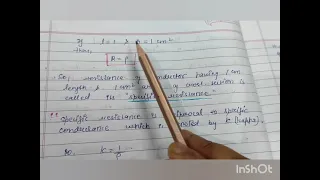 If l = 1 & a = 1 cm²
then,
R = ρ
So, resistance of conductor having 1 cm
length & 1 cm² area of cross section is
called its "specific resistance"
Specific resistance is reciprocal → specific
conductance which is denoted by K (kappa).
So, K = 1/ρ
InShOt